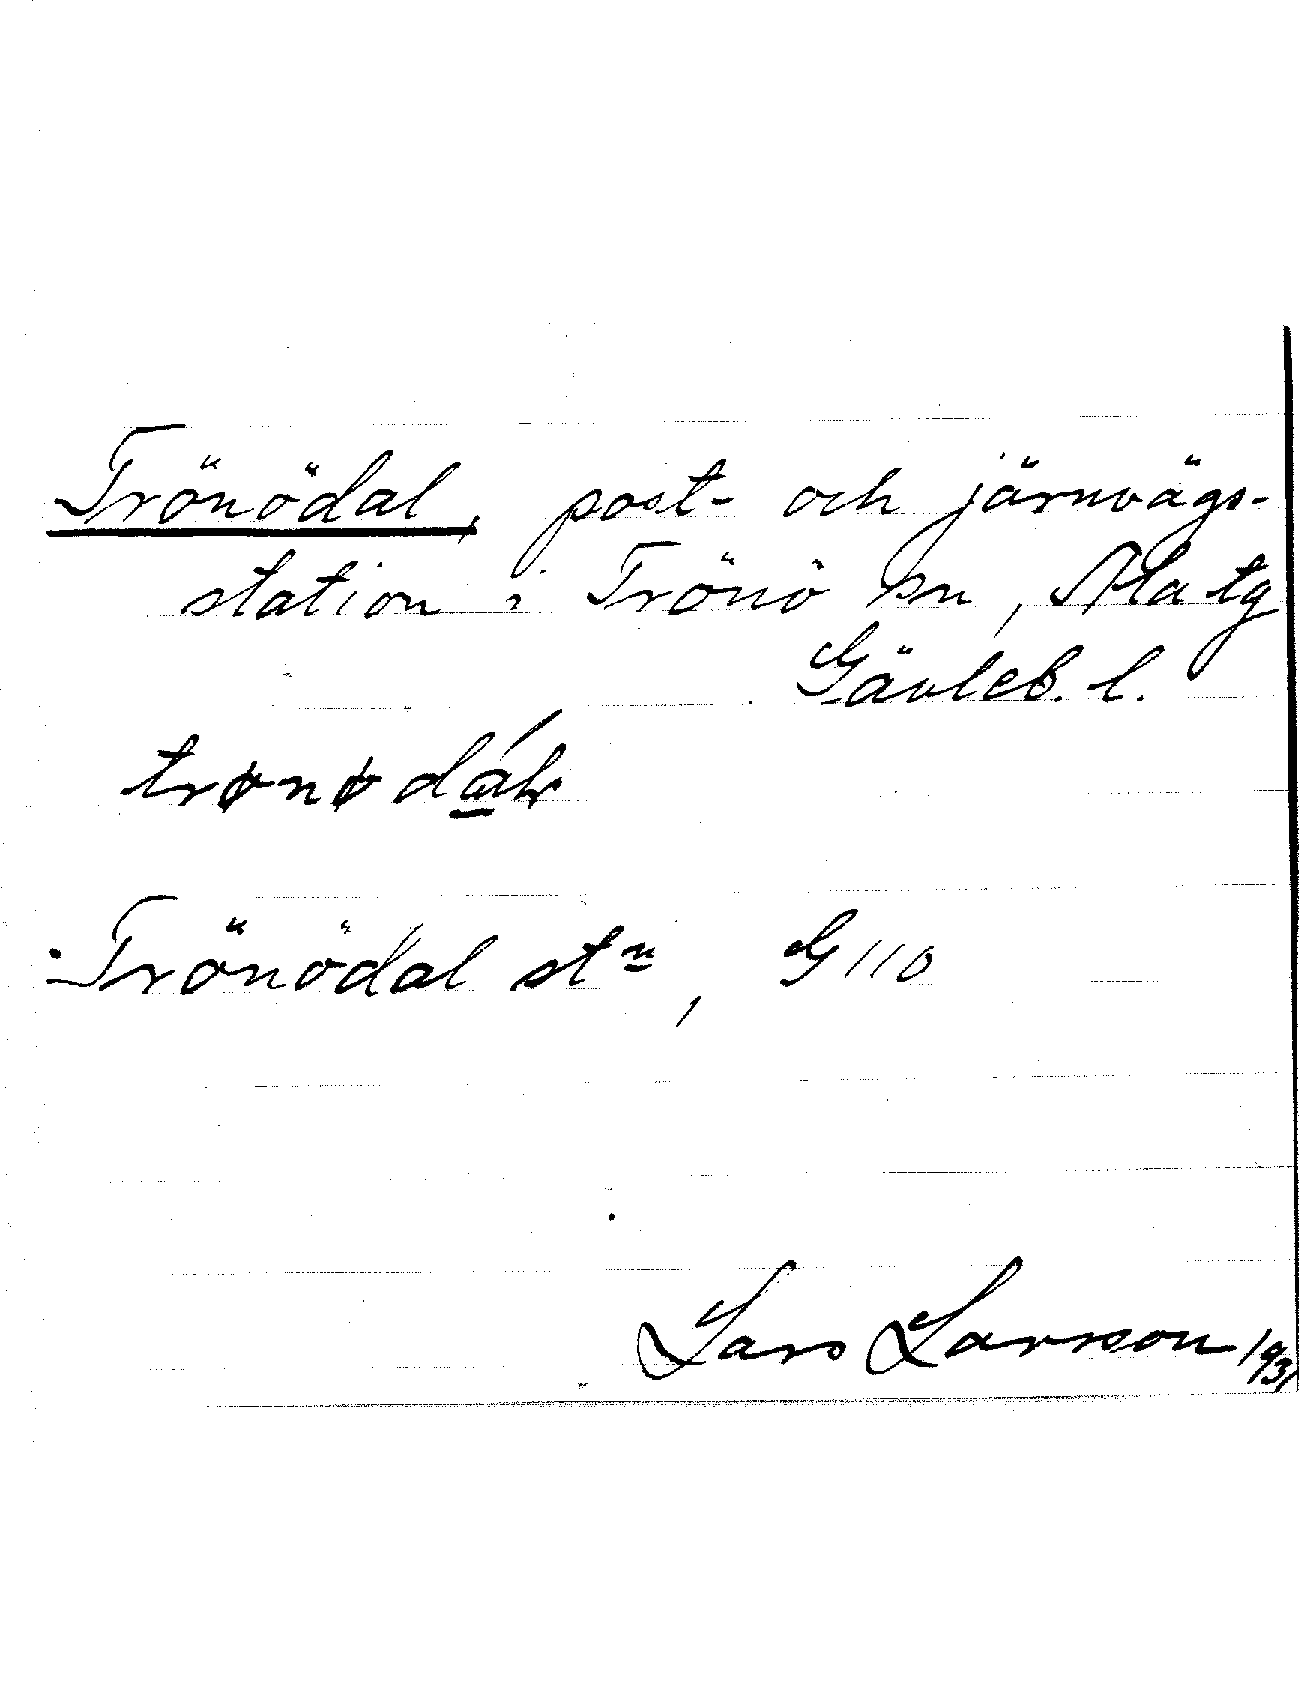 Trönödal, post- och järnvägs-
station i Trönö sn, Ala tg
Gävleb. l.
trønø dálr
Trönödal stn, G 110
Lars Larsson 1931